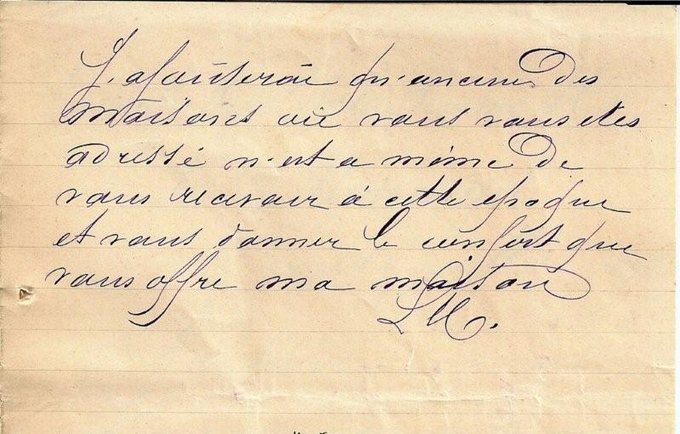 J'ajouterai qu'aucune Des
maisons où vous vous etes
adressé n'est a même de
vous recevoir à cette epoque
et vous donner le confort que
vous offre ma maison
LM.